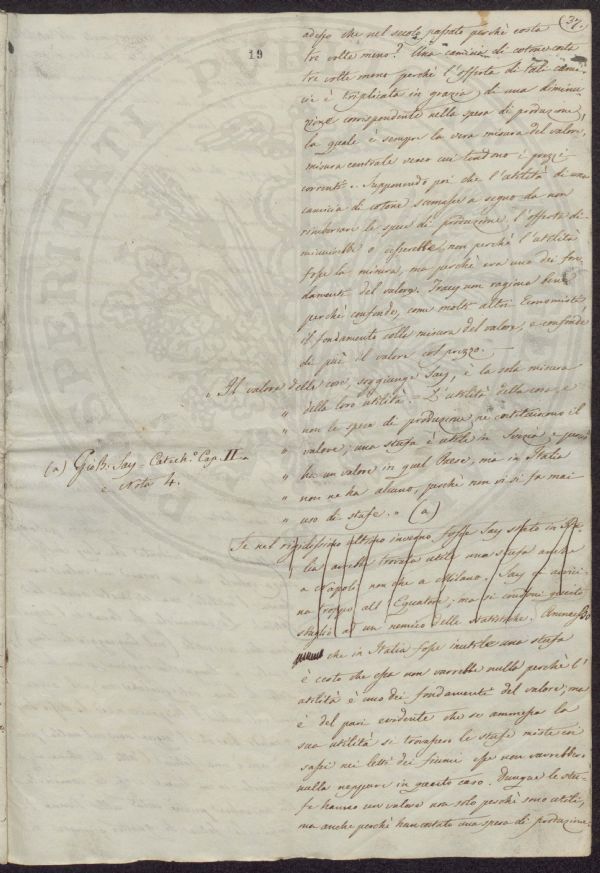 37.
19
adesso che nel secolo passato perchè costa
tre volte meno? Una camicia di cotone costa
tre volte meno perchè l'offerta di tali cami-
cie è triplicata in grazia di una diminu
zione corrispondente nella spesa di produzione,
la quale è sempre la vera misura del valore,
misura centrale verso cui tendono i prezzi
correnti. Supponendo poi che l'utilità di una
camicia di cotone scemasse a segno da non
rimborsare le spese di produzione, l'offerta di-
minuirebbe o cesserebbe, non perchè l'utilità
fosse la misura, ma perchè era uno dei fon-
damenti del valore. Tracy non ragiona bene
perchè confonde, come molti altri Economisti
il fondamento colla misura del valore, e confonde
di più il valore col prezzo.
„ Il valore delle cose, soggiunge Say, è la sola misura
„ della loro utilità. = L'utilità della cosa e
„ non le spese di produzione ne costituiscono il
„ valore; una stufa è utile in Svezia, perciò
„ ha un valore in quel Paese, ma in Italia
„ non ne ha alcuno, perchè non vi si fa mai
„ uso di stufe. „ (a)
(a) Giob. Say - Catech.o Cap. II.
e Nota 4.
Se nel rigidissimo ultimo inverno fosse Say stato in Ita-
lia avrebbe trovata utile una stufa anche
a Napoli non che a Milano. Say avvici-
na troppo all'Equatore; ma si condoni questo
sbaglio ad un nemico delle statistiche. Ammesso
che in Italia fosse inutile una stufa
è certo che essa non varrebbe nulla perchè l'
utilità è uno dei fondamenti del valore; ma
è del pari evidente che se ammessa la
sua utilità si trovassero le stufe miste coi
sassi nei letti dei fiumi esse non varrebbero
nulla neppure in questo caso. Dunque le stu-
fe hanno un valore non solo perchè sono utili,
ma anche perchè han costato una spesa di produzione.